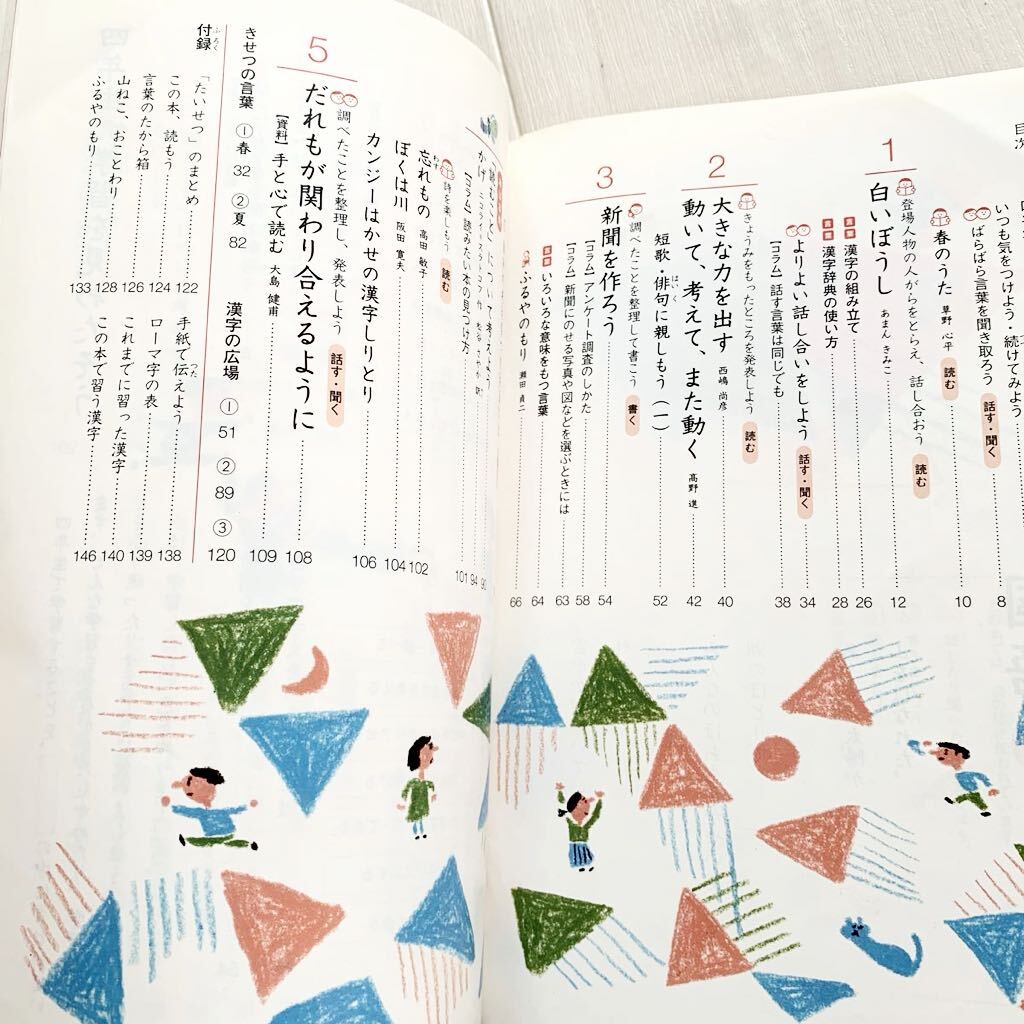 目次
いつも気をつけよう・続けてみよう
ばらばら言葉を聞き取ろう 話す・聞く 8
春のうた 草野 心平 読む 10
1
登場人物の人がらをとらえ、話し合おう 読む
白いぼうし あまん きみこ 12
言葉 漢字の組み立て 26
言葉 漢字辞典の使い方 28
よりよい話し合いをしよう 話す・聞く 34
【コラム】話す言葉は同じでも 38
2
きょうみをもったところを発表しよう 読む
大きな力を出す 西嶋 尚彦 40
動いて、考えて、また動く 高野 進 42
短歌・俳句に親しもう（一） 52
はいく
3
調べたことを整理して書こう 書く
新聞を作ろう 54
【コラム】アンケート調査のしかた 58
【コラム】新聞にのせる写真や図などを選ぶときには 63
言葉 いろいろな意味をもつ言葉 64
ふるやのもり 瀬田 貞二 66
について考えよう
かげ 90
94
【コラム】読みたい本の見つけ方 101
詩を楽しもう 読む
忘れもの 高田 敏子 102
わす
ぼくは川 阪田 寛夫 104
カンジーはかせの漢字しりとり 106
5
調べたことを整理し、発表しよう 話す・聞く
だれもが関わり合えるように 108
【資料】手と心で読む 大島 健甫 109
きせつの言葉 ①春 32 ②夏 82
漢字の広場 ① 51 ② 89 ③ 120
付録
ふろく
「たいせつ」のまとめ 122
この本、読もう 124
言葉のたから箱 126
山ねこ、おことわり 128
ふるやのもり 133
手紙で伝えよう 138
つた
ローマ字の表 139
これまでに習った漢字 140
この本で習う漢字 146